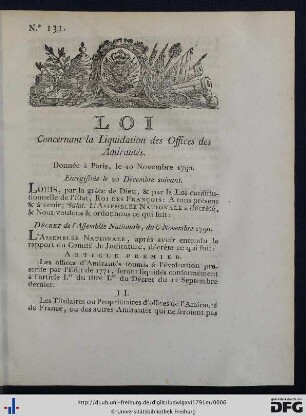 N.º 131.
LOI
Concernant la Liquidation des Offices des
Amirautés.
Donnée à Paris, le 10 Novembre 1790.
Enregistrée le 20 Décembre suivant.
LOUIS, par la grâce de Dieu, & par la Loi constitu-
tionnelle de l'état, ROI DES FRANÇOIS: A tous présens
& à venir; Salut. L'ASSEMBLÉE NATIONALE a décrété,
& Nous voulons & ordonnons ce qui suit:
DÉCRET de l'Assemblée Nationale, du 6 Novembre 1790.
L'ASSEMBLÉE NATIONALE, après avoir entendu le
rapport du Comité de Judicature, décrète ce qui suit:
ARTICLE PREMIER.
Les offices d'Amirautés soumis à l'évaluation pres-
crite par l'Edit de 1771, seront liquidés conformément
à l'article I.er du titre I.er du Décret du 12 Septembre
dernier.
II.
Les Titulaires ou Propriétaires d'offices de l'Amirauté
de France, ou des autres Amirautés qui ne seroient pas
http://dl.ub.uni-freiburg.de/diglit/ludwigxvi1791m/0006
© Universitätsbibliothek Freiburg
gefördert durch
DFG